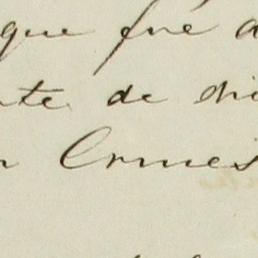 que fué a
nte de di
n Ermes